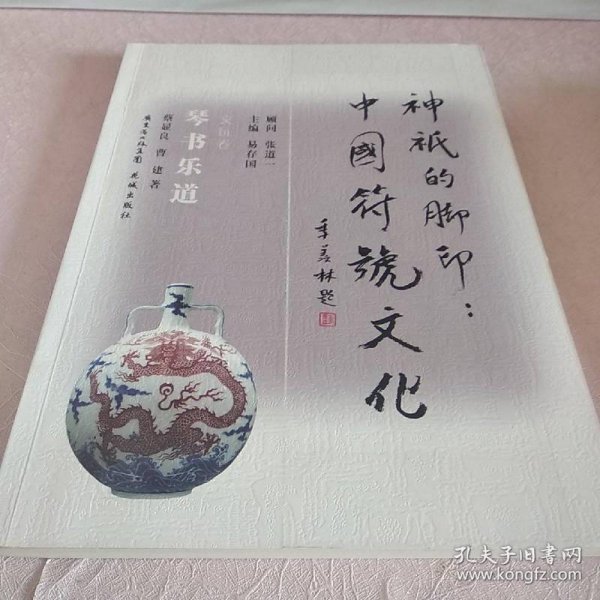 神祇的脚印：
中國符號文化
季羡林题
顾问 张道一
主编 易存国
文房卷
琴书乐道
蔡显良 曹建 著
广东省出版集团 花城出版社
孔夫子旧书网
www.kongfz.com